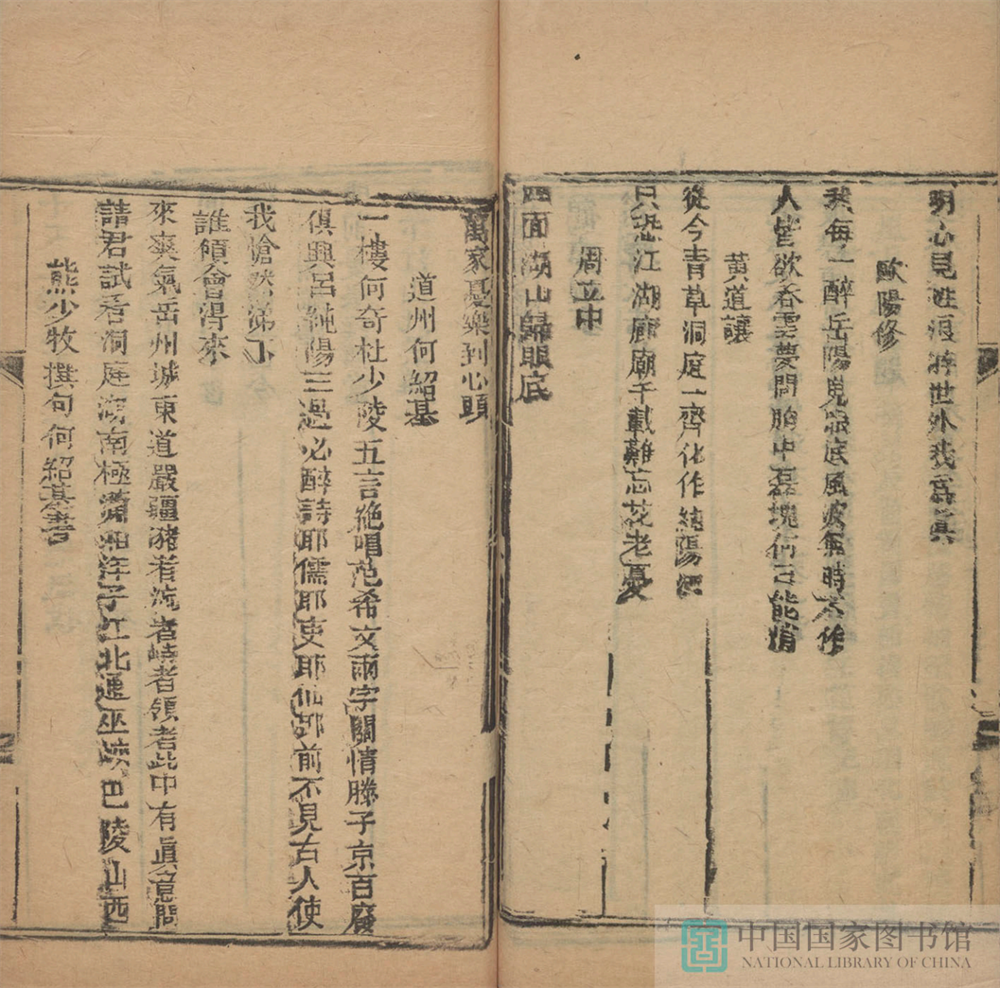 明心見性浪游世外我爲眞
歐陽修
我每一醉岳陽見眼底風波無時不作
人皆欲吞雲夢問胸中磊塊何由能消
黃道讓
從今青草洞庭一齊化作純陽
只恐江湖廊廟千載難忘花老憂
周立中
四面湖山歸眼底
萬家憂樂到心頭
道州何紹基
一樓何奇杜少陵五言絶唱范希文兩字關情滕子京百廢
俱興呂純陽三過必醉詩耶儒耶吏耶仙耶前不見古人使
我愴然涕下
誰領會得來
來爽氣岳州城東道嚴疆潴者流者峙者領者此中有眞意問
請君試看洞庭湖南極瀟湘洋子江北通巫峽巴陵山西
熊少牧撰句何紹基書
中国国家图书馆
NATIONAL LIBRARY OF CHINA